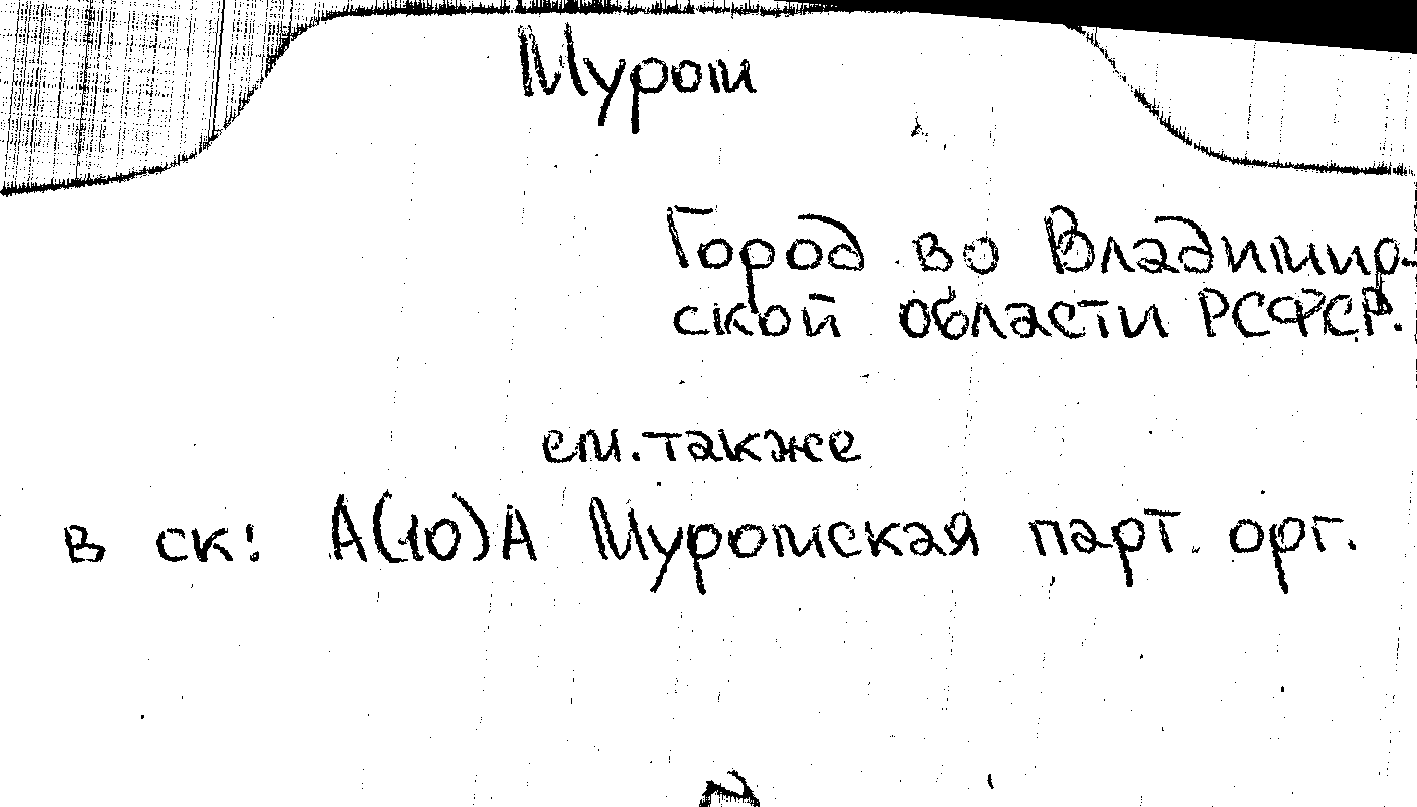 Муром
Город во Владимир-
ской области РСФСР.
см. также
в ск: А(10)А Муромская парт. орг.